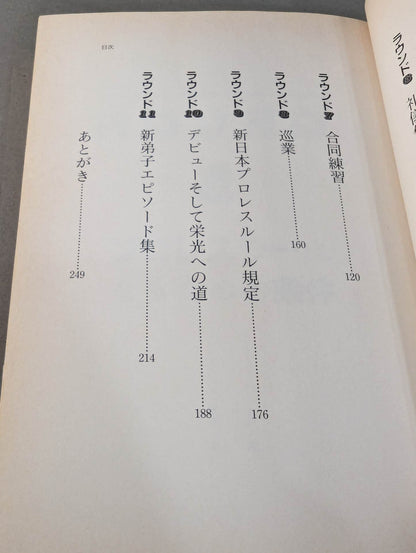 ラウンド6
ラウンド7 合同練習……………120
ラウンド8 巡業……………160
ラウンド9 新日本プロレスルール規定……………176
ラウンド10 デビューそして栄光への道……………188
ラウンド11 新弟子エピソード集……………214
あとがき……………249
目次